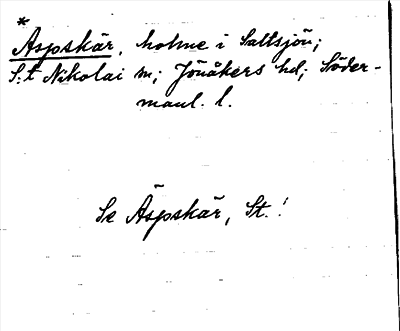 *
Aspskär, holme i Saltsjön;
S:t Nikolai sn; Jönåkers hd; Söder-
manl. l.
Se Äspskär, St.!